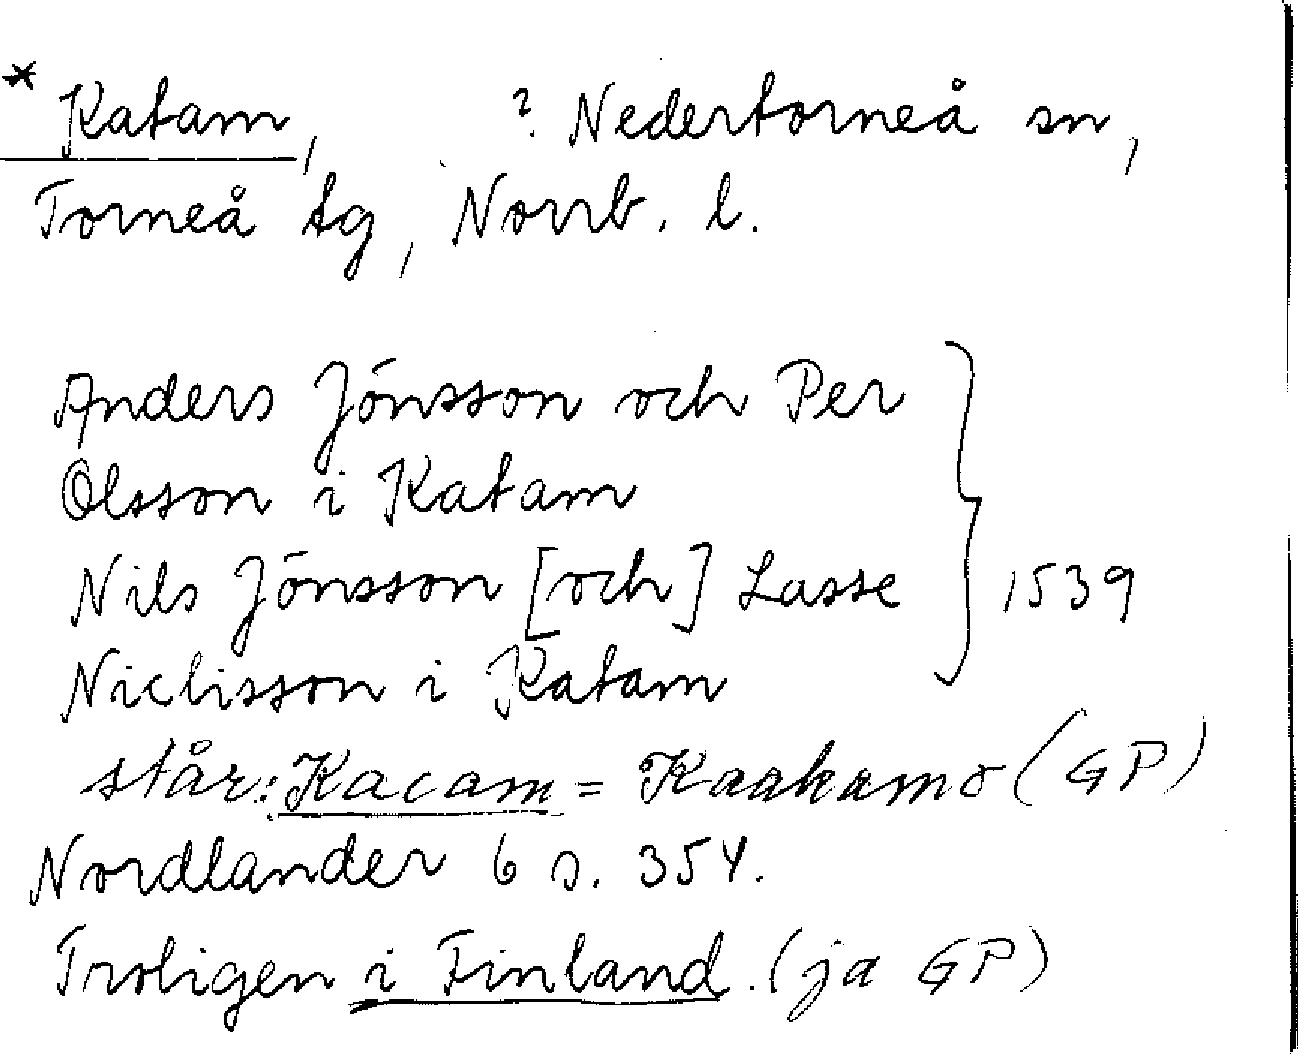 * Katam, ? Nedertorneå sn,
Torneå tg, Norrb. l.
Anders Jónsson och Per
Olsson i Katam
Nils Jónsson [och] Lasse } 1539
Niclisson i Katam
står: Kacam = Kaakamo (GP)
Nordlander 6 s. 354.
Troligen i Finland. (ja GP)